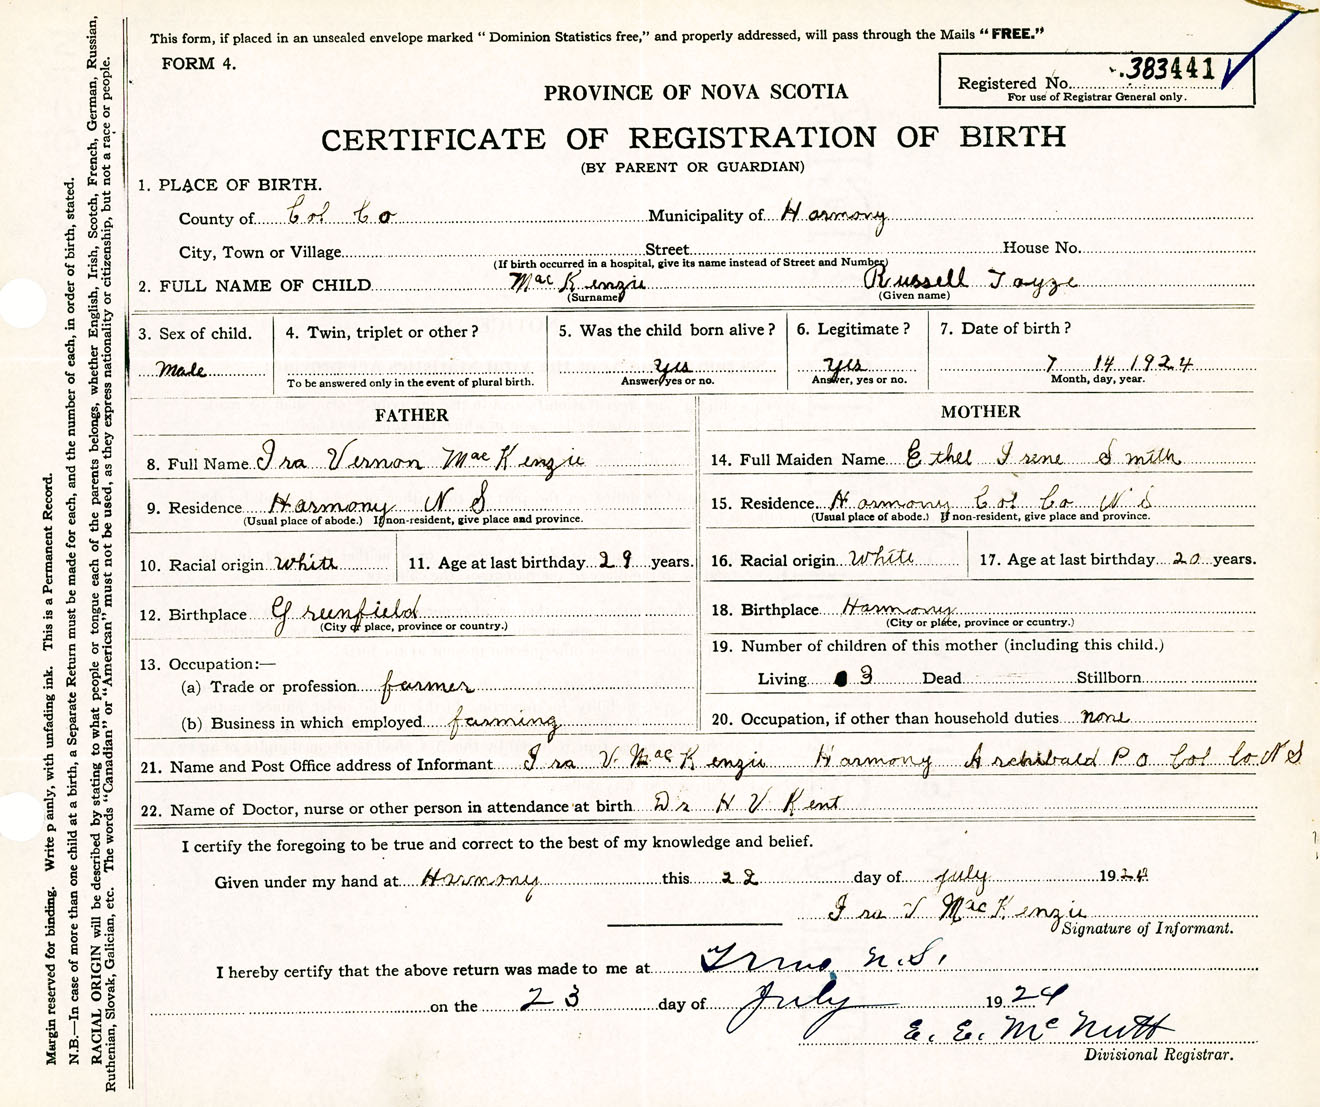 This form, if placed in an unsealed envelope marked " Dominion Statistics free," and properly addressed, will pass through the Mails " FREE."
FORM 4.
Registered No. 383441
For use of Registrar General only.
PROVINCE OF NOVA SCOTIA
CERTIFICATE OF REGISTRATION OF BIRTH
(BY PARENT OR GUARDIAN)
1. PLACE OF BIRTH.
County of Col Co Municipality of Harmony
City, Town or Village Street House No.
(If birth occurred in a hospital, give its name instead of Street and Number)
2. FULL NAME OF CHILD MacKenzie Russell
(Surname) (Given name)
3. Sex of child. 4. Twin, triplet or other ? 5. Was the child born alive ? 6. Legitimate ? 7. Date of birth ?
Male Yes Yes 7 14 1924
To be answered only in the event of plural birth. Answer, yes or no. Answer, yes or no. Month, day, year.
FATHER MOTHER
8. Full Name Ira Vernon MacKenzie 14. Full Maiden Name Ethel Irene Smith
9. Residence Harmony N S 15. Residence Harmony Col Co N S
(Usual place of abode.) If non-resident, give place and province. (Usual place of abode.) If non-resident, give place and province.
10. Racial origin White 11. Age at last birthday 29 years. 16. Racial origin White 17. Age at last birthday 20 years.
12. Birthplace Greenfield 18. Birthplace Harmony
(City or place, province or country.) (City or place, province or country.)
13. Occupation:— 19. Number of children of this mother (including this child.)
(a) Trade or profession farmer Living 3 Dead Stillborn
(b) Business in which employed farming 20. Occupation, if other than household duties none
21. Name and Post Office address of Informant Ira V. MacKenzie Harmony Archibald P O Col Co. N S
22. Name of Doctor, nurse or other person in attendance at birth Dr H V Kent
I certify the foregoing to be true and correct to the best of my knowledge and belief.
Given under my hand at Harmony this 22 day of july 1924
Ira V MacKenzie
Signature of Informant.
I hereby certify that the above return was made to me at Truro, N.S.
on the 23 day of July 1924
E. E. McNutt
Divisional Registrar.
Margin reserved for binding. Write p ainly, with unfading ink. This is a Permanent Record.
N.B.—In case of more than one child at a birth, a Separate Return must be made for each, and the number of each, in order of birth, stated.
RACIAL ORIGIN will be described by stating to what people or tongue each of the parents belongs, whether English, Irish, Scotch, French, German, Russian,
Ruthenian, Slovak, Galician, etc. The words "Canadian" or "American" must not be used, as they express nationality or citizenship, but not a race or people.